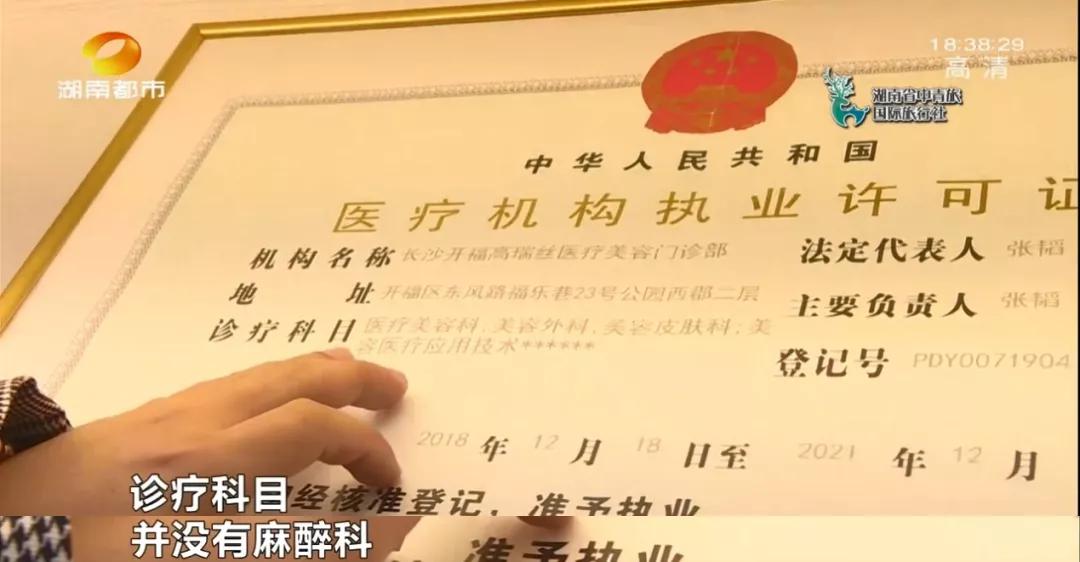 湖南都市
18:38:29
高清
湖南省中青旅
国际旅行社
中华人民共和国
医疗机构执业许可证
机构名称 长沙开福高瑞丝医疗美容门诊部
法定代表人 张韬
地址 开福区东风路福乐巷23号公园西郡二层
主要负责人 张韬
诊疗科目 医疗美容科;美容外科;美容皮肤科;美
容医疗应用技术******
登记号 PDY0071904
2018 年 12 月 18 日至 2021 年 12 月
经核准登记，准予执业
诊疗科目
并没有麻醉科
准予执业